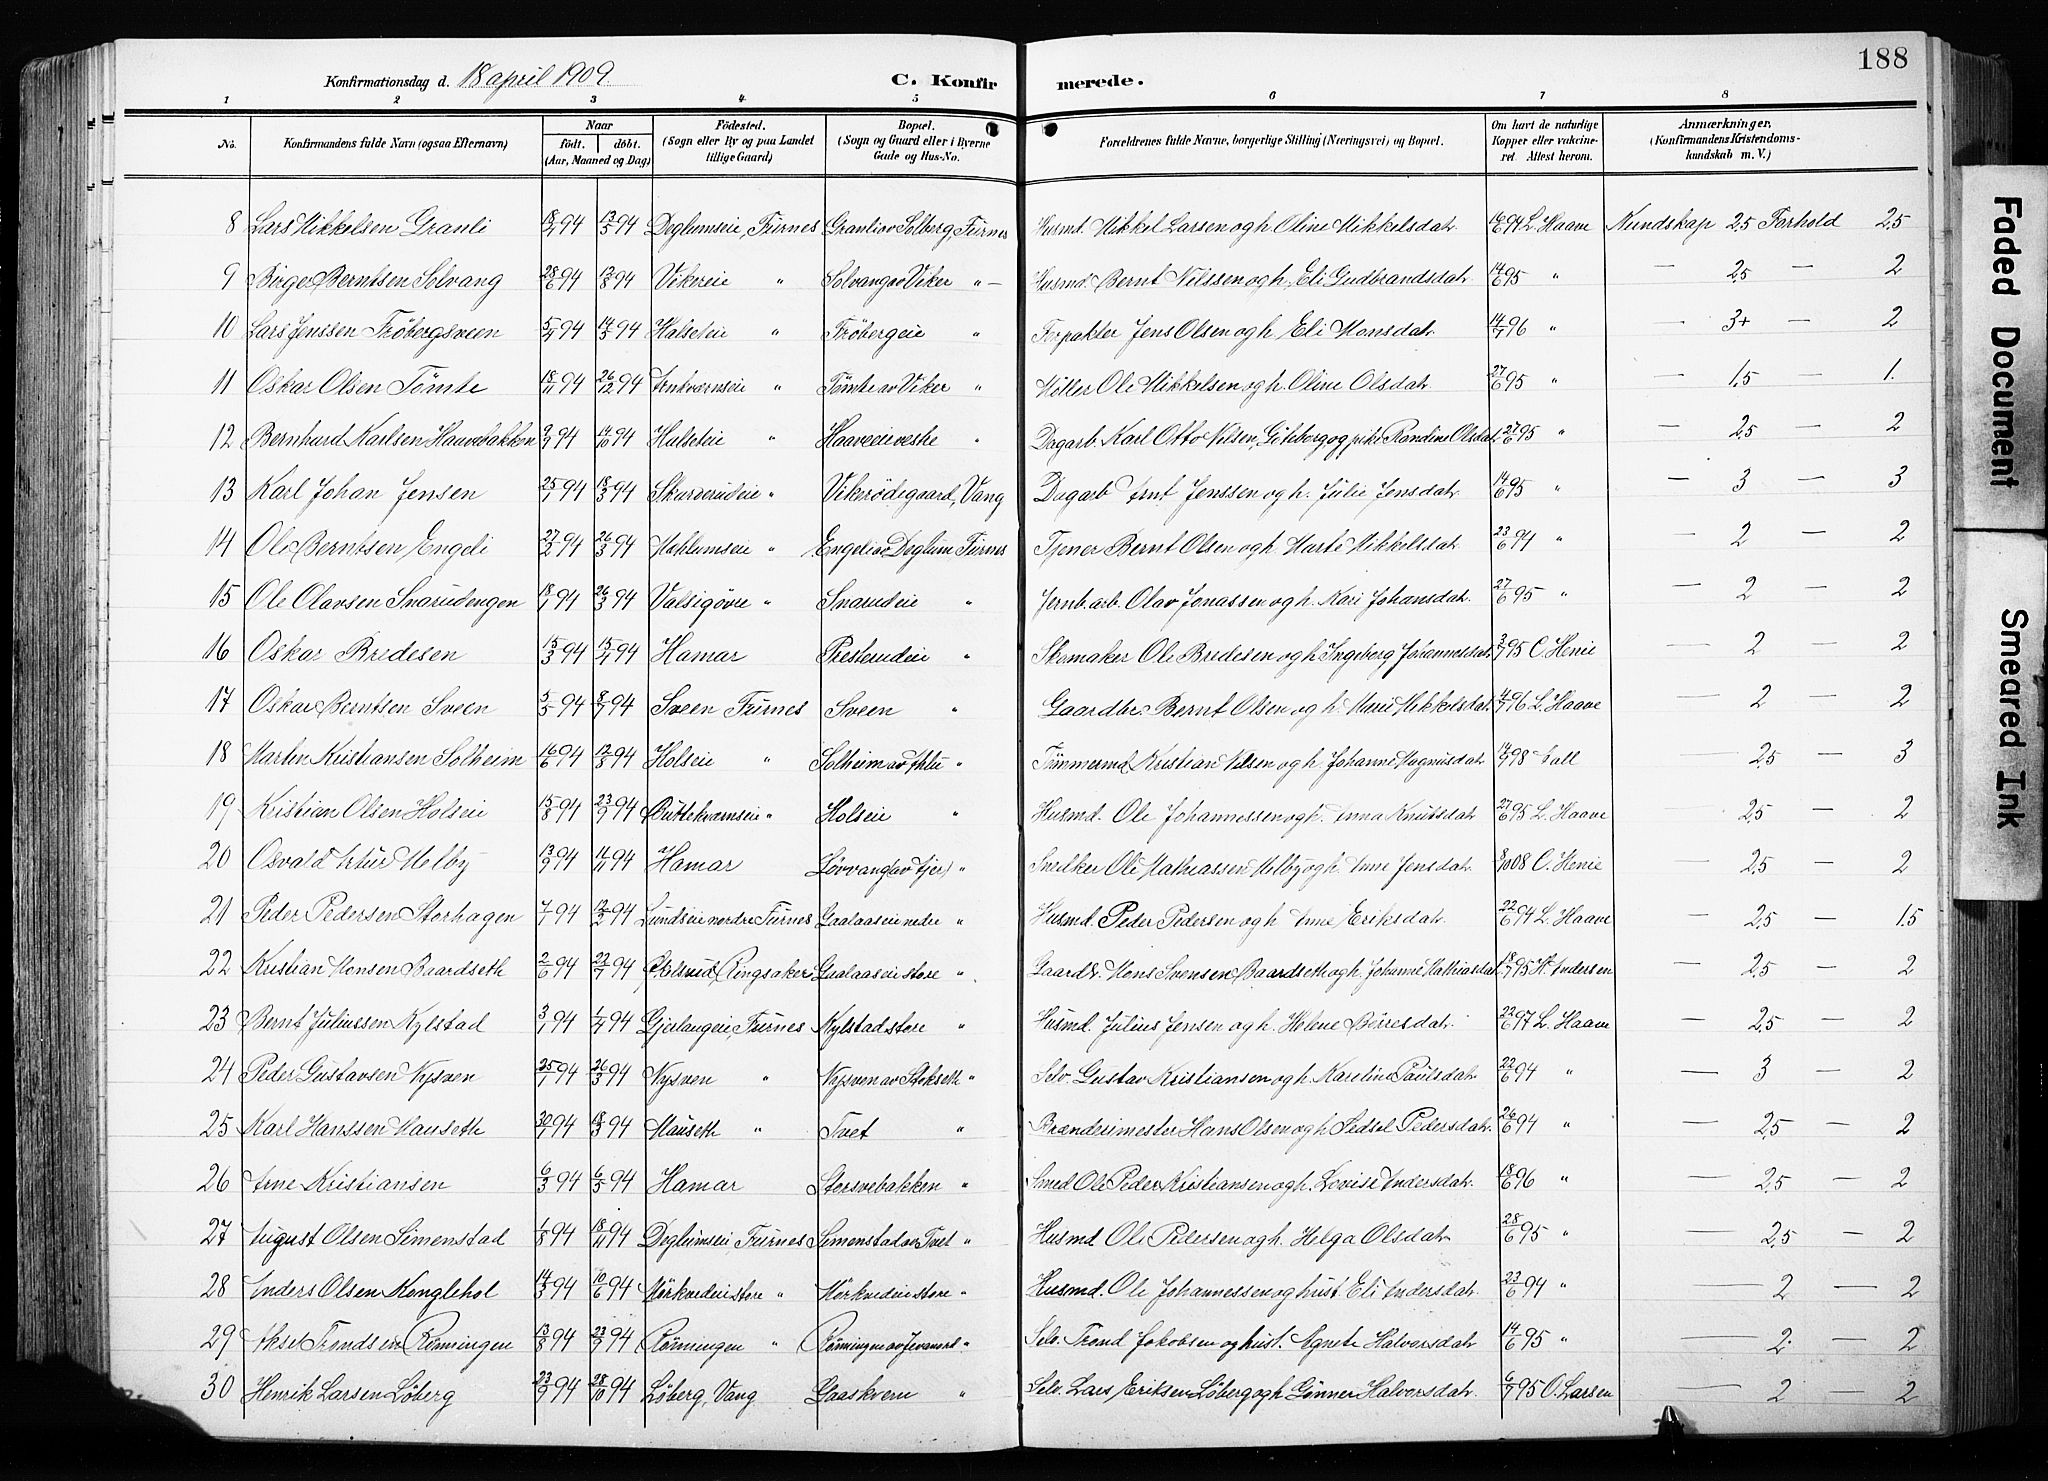 188
Konfirmationsdag d. 18 april 1909. C. Konfirmerede.
1 2 3 4 5 6 7 8
No. Konfirmandens fulde Navn (ogsaa Efternavn) Naar født. døbt. (Aar, Maaned og Dag) Fødested. (Sogn eller By og paa Landet tillige Gaard) Bopæl. (Sogn og Gaard eller i Byerne Gade og Hus-No. Forældrenes fulde Navne, borgerlige Stilling (Næringsvei) og Bopæl. Om havt de naturlige Kopper eller vakcineret Attest herom. Anmærkninger, (Konfirmandens Kristendomskundskab m. V.)
8 Lars Mikkelsen Granli 18/4 94 13/5 94 Deglumseie, Furnes Granli av Solberg, Furnes Husmd. Mikkel Larsen og h. Oline Mikkelsdatr. 14/6 94 L. Haave Kundskap 2,5 Forhold 2,5
9 Birger Berntsen Solvang 28/6 94 12/8 94 Vikereie " Solvang av Viker " Husmd. Bernt Nilssen og h. Eli Gudbrandsdatr. 14/6 95 " — 2,5 — 2
10 Lars Jenssen Frøbergsveen 5/4 94 14/5 94 Halseteie " Frøbergeie " Forpakter Jens Olsen og h. Eli Monsdatr. 14/7 96 " — 3+ — 2
11 Oskar Olsen Tømte 18/11 94 26/12 94 Arnkværnseie " Tømte av Viker " Møller Ole Mikkelsen og h. Oline Olsdatr. 27/6 95 " — 1,5 — 1.
12 Bernhard Karlsen Haavebakken 9/9 94 14/10 94 Halseteie " Haaveeie vestre " Dagarb. Karl Otto Nilsen, Göteborg og pike Randine Olsdatr. 27/6 95 " — 2,5 — 2
13 Karl Johan Jensen 25/1 94 18/3 94 Skurverudeie " Vikerødegaard, Vang Dagarb. Arnt Jenssen og h. Julie Jensdatr. 14/6 95 " — 3 — 3
14 Ole Berntsen Engeli 27/2 94 26/3 94 Mæhlumseie " Engeli av Deglum, Furnes Tjener Bernt Olsen og h. Marte Mikkelsdatr. 23/6 94 " — 2 — 2
15 Ole Olavsen Snarudengen 18/1 94 26/3 94 Valsigøvre " Snarudeie " Jernb.arb. Olav Jonassen og h. Kari Johansdatr. 27/6 95 " — 2 — 2
16 Oskar Bredesen 15/3 94 15/4 94 Hamar Presterudeie " Skomaker Ole Bredesen og h. Ingeborg Johannesdatr. 3/7 95 C. Henie — 2 — 2
17 Oskar Berntsen Sveen 5/5 94 8/7 94 Sveen Furnes Sveen " Gaardbr. Bernt Olsen og h. Marie Mikkelsdatr. 4/7 96 L. Haave — 2 — 2
18 Martin Kristiansen Solheim 16/6 94 12/8 94 Holseie " Solheim av " Tømmermd. Kristian Nilsen og h. Johanne Magnusdatr. 14/9 98 — 2,5 — 3
19 Kristian Olsen Holseie 15/8 94 23/9 94 Buttekværnseie " Holseie " Husmd. Ole Johannessen og h. Anna Knutsdatr. 27/6 95 L. Haave — 2,5 — 2
20 Osvald Artur Melby 13/9 94 11/11 94 Hamar Løvvang (av Ajer) " Snedker Ole Mathiassen Melby og h. Anne Jensdatr. 8/10 08 C. Henie — 2,5 — 2
21 Peder Pedersen Storhagen 7/1 94 12/2 94 Lundseie nordre Furnes Gaalaaseie nedre " Husmd. Peder Pedersen og h. Anne Eriksdatr. 22/6 94 L. Haave — 2,5 — 1,5
22 Kristian Monsen Baardseth 2/6 94 22/7 94 Ringsaker Gaalaaseie store " Gaardbr. Mons Svensen Baardseth og h. Johanne Mathiasdatr. 18/7 95 H. Andersen — 2,5 — 2
23 Bernt Juliussen Kylstad 3/1 94 1/4 94 Gjerlangeie, Furnes Kylstad store " Husmd. Julius Jensen og h. Helene Børresdatr. 22/6 97 L. Haave — 2,5 — 2
24 Peder Gustavsen Nysven 25/1 94 26/3 94 Nysven " Nysven av Stokseth " Selv. Gustav Kristiansen og h. Karoline Paulsdatr. 22/6 94 " — 3 — 2
25 Karl Hanssen Mauseth 30/1 94 18/3 94 Mauseth " Tvet " Brænderimester Hans Olsen og h. Sedsel Pedersdatr. 26/6 94 " — 2,5 — 2
26 Arne Kristiansen 6/3 94 6/5 94 Hamar Storsvebakken " Smed Ole Peder Kristiansen og h. Lovise Andersdatr. 18/6 96 " — 2,5 — 2
27 August Olsen Simenstad 1/8 94 18/11 94 Deglumseie Furnes Simenstad av Tvet " Husmd. Ole Pedersen og h. Helga Olsdatr. 28/6 95 " — 2,5 — 2
28 Anders Olsen Konglehol 14/3 94 10/6 94 Mørkvedeie store " Mørkvedeie store " Husmd. Ole Johannessen og hust. Eli Andersdatr. 23/6 94 " — 2 — 2
29 Aksel Trondsen Rønningen 13/8 94 23/9 94 Rønningen " Rønningen av Jevanord " Selv. Trond Jakobsen og hust. Agnete Halvorsdatr. 14/6 95 " — 2 — 2
30 Henrik Larsen Løberg 23/9 94 28/10 94 Løberg, Vang Gaaskvern " Selv. Lars Eriksen Løberg og h. Gunner Halvorsdatr. 6/7 95 O. Larsen — 2 — 2
Faded Document
Smeared Ink